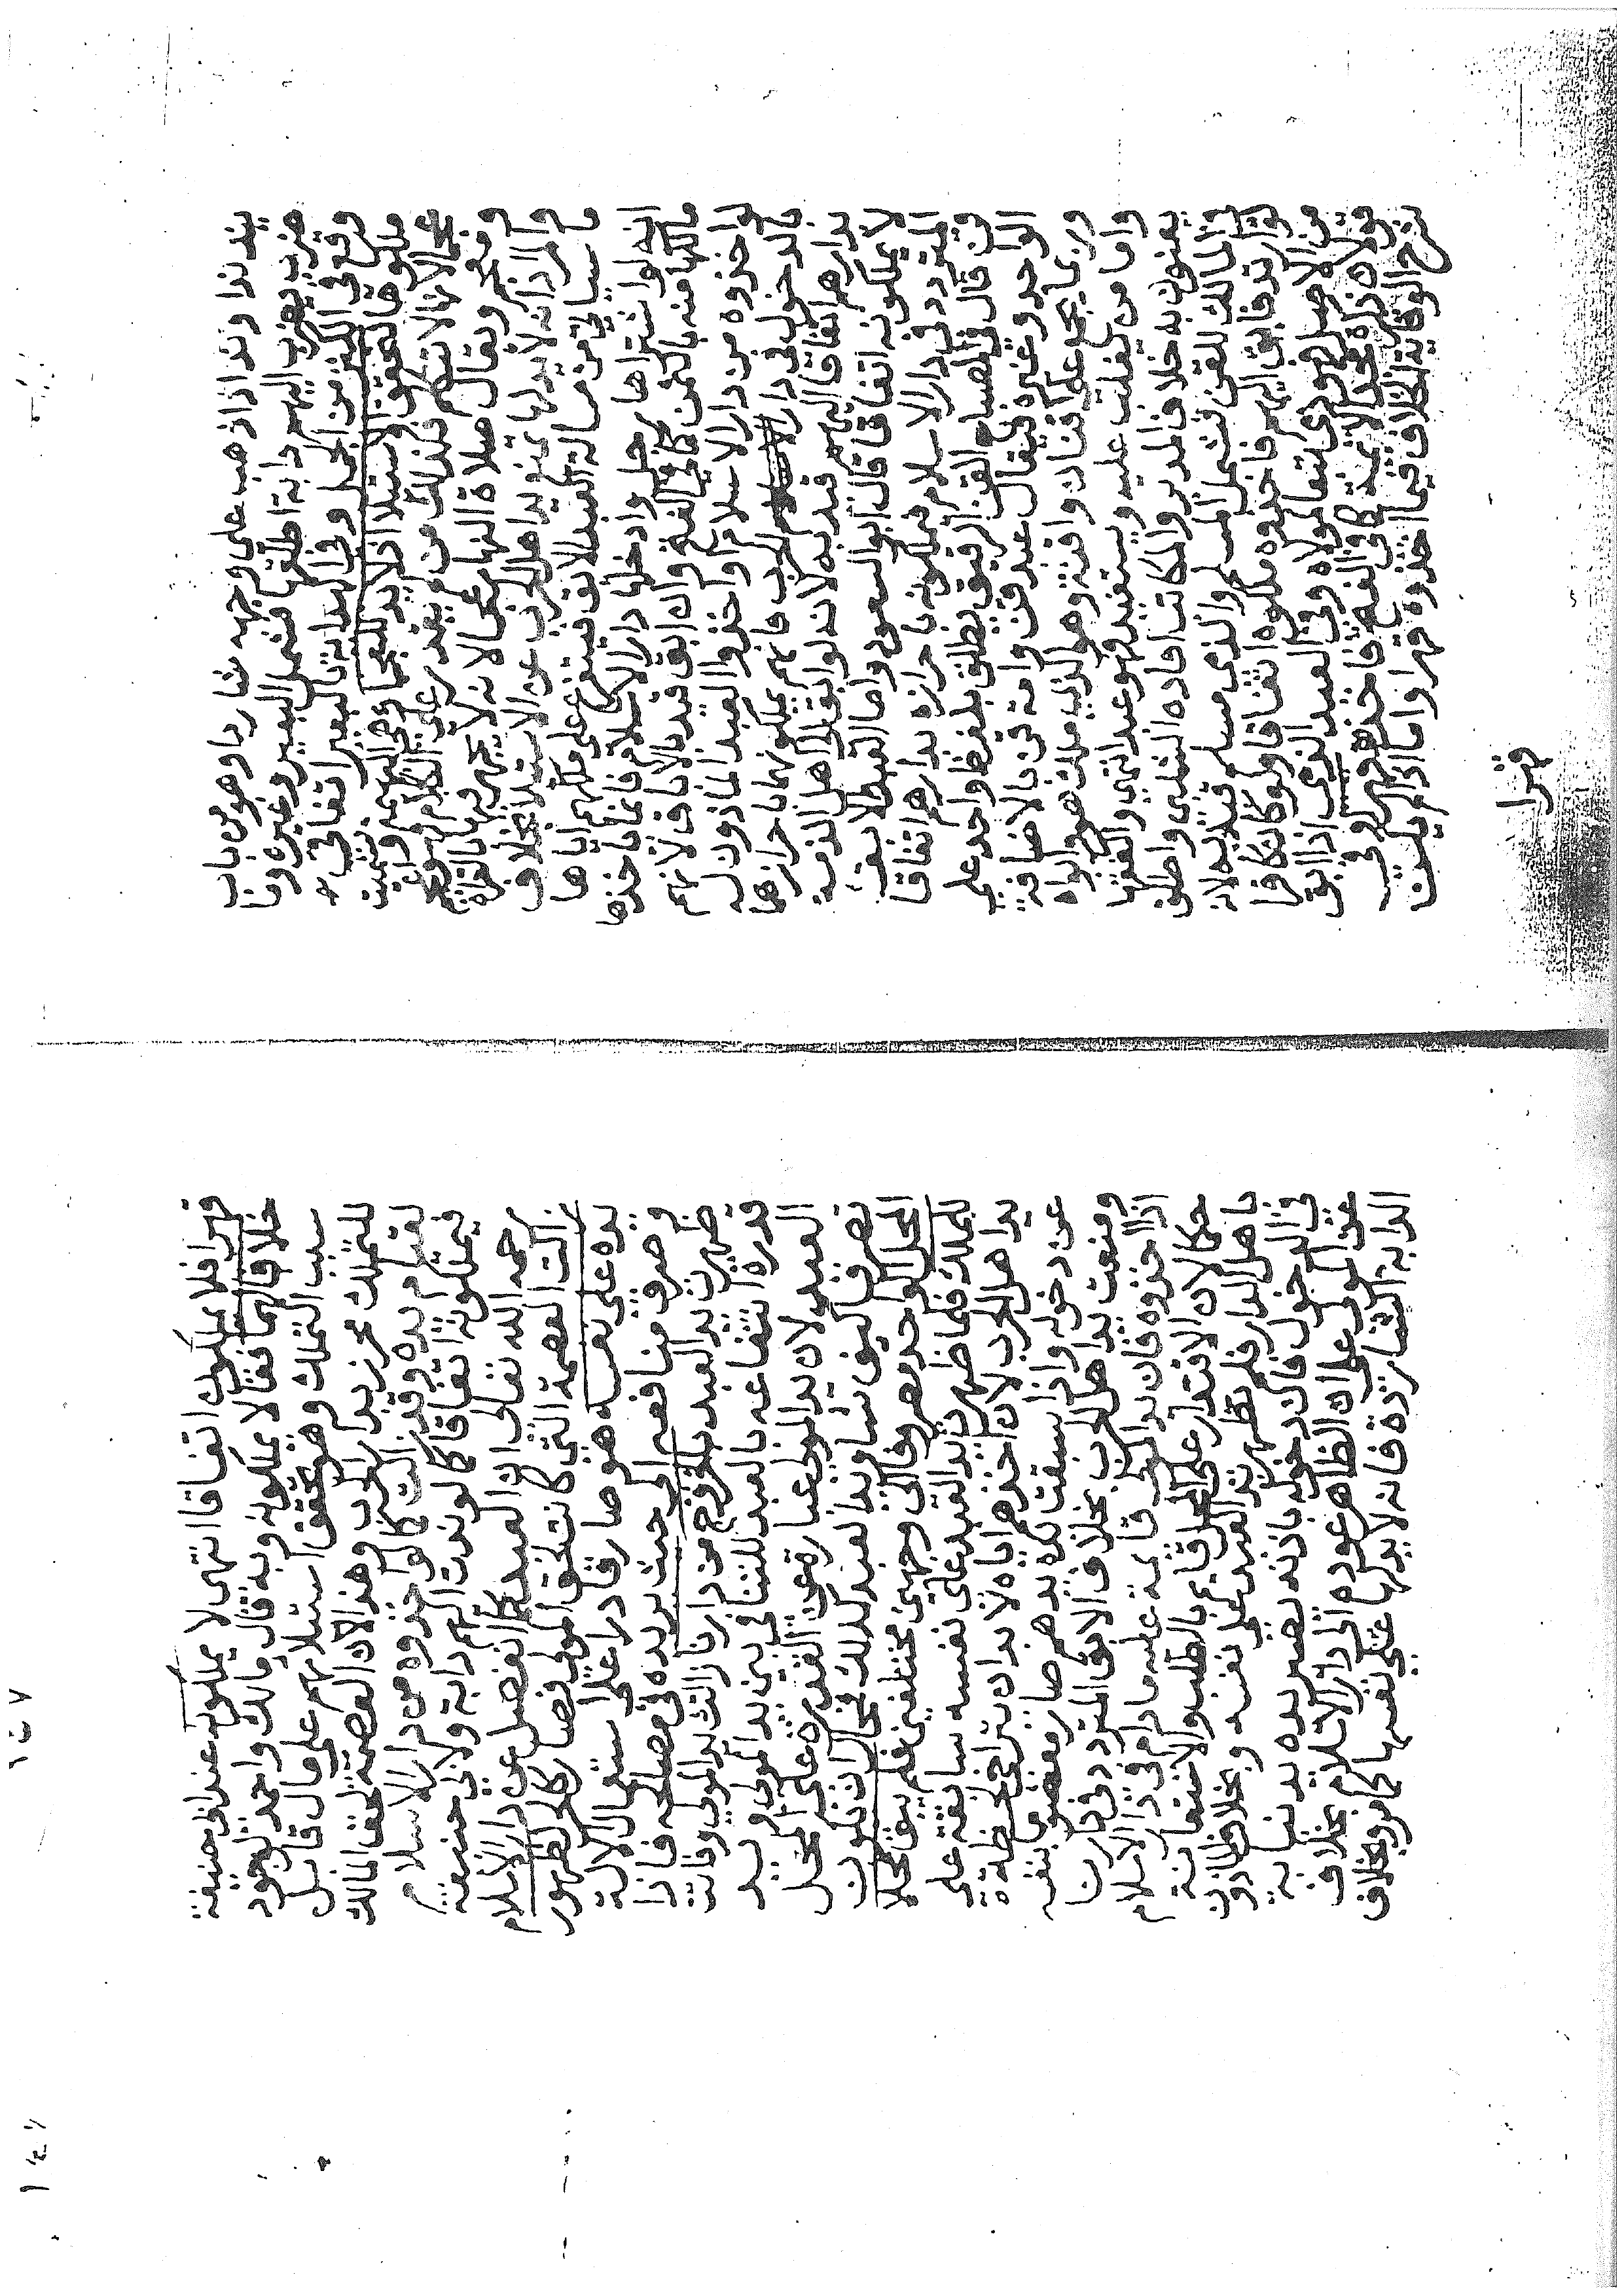 يند ندا ونداذا ذهب على وجهه شاردا وهو من باب
ضرب يضرب اليهم دابة اطلقها فشمل البعير وغيره وما
وقع في الكنز من الجمل وفي الهداية بالبعير اتفاقي
ملكوها لتحقق الاستيلا اذ لا يد للعجما وهي البهيمة وانما سميت
عجما لانها لا تتكلم فكذلك من لم يقدر على الكلام فهو اعجم
ومستعجم ويقال صلاة النهار عجما لانه لا يجهر فيها بالقراءة
والمراد انه لا يد لها يمنع يد اهل الحرب عن الاستيلا بخلاف
ما سياتي من مسالة العبد الابق ويتفرع على ملكهم اياها
انه لو اشتراها رجل وادخلها دار الاسلام فانما ياخذها
مالكها منه بالثمن كما في الفتح وان ابق قيد بالاباق لانهم
لو اخذوه من دار الاسلام او اخذوا العبد الماذون له
في الدخول في دار الحرب فانهم يملكونهما باحرازهما
بدارهم اتفاقا اليهم قيد به لانه لو ابق الى اهل الذمة
لا يملكونه اتفاقا قال ابو السعود واما
المتردد في دار الاسلام فيملكونه باحرازه بدارهم اتفاقا
قن قال في المصباح القن الرقيق يطلق بلفظ واحد على
الواحد وغيره فيقال عبد قن وامة قن بالاضافة
وربما جمع على اقنان واقنة وهو الذي ملك هو وابواه
واما من يغلب عليه ويستعبد فهو عبد والفقها
يعنون به خلاف المدبر والمكاتب افاده الشلبي واطلق
في المالك للقن فشمل المسلم والذمي مسلم قيد به لانه
لو ارتد فابق اليهم فاخذوه ملكوه اتفاقا ولو كان كافرا
من الاصل فهو ذمي تبعا لمولاه وفي العبد الذمي اذا ابق
قولان ذكره الائمة كما في الفتح فاخذوه قهرا وفي
شرح الوقاية الخلاف فيما اخذوه قهرا واما اذا لم
قهرا
قهرا فلا يملكونه اتفاقا انتهى لا يملكونه عند ابي حنيفة
خلافا لهما فقالا يملكونه وبه قال مالك واحمد لوجود
سبب التملك وهو تحقق استيلائهم على مال قابل
للتملك محرز بدار الحرب وهذا لان العصمة لحق المالك
لقيام يده وقد زالت كما لو اخذوه من دار الاسلام
فيملكونه اتفاقا كما لو ندت اليهم دابة ولابي حنيفة
رحمه الله تعالى ان العبد كما انفصل عن دار الاسلام
زالت العصمة التي كانت لحق المولى فصار كما لظهور
يده على نفسه فهو صار قادرا على استعمال الالة
وصرف منافعه الى حيث يريده في مصالحه فاذا
ظهرت يد العبد بالخروج من دارنا زالت يد المولى وفاتت
قدرة انتفاعه بالعبد للتنافي بين يد المولى ويد
العبد لان يد المولى عبارة عن القدرة على المحل
تصرفا كيف شاء ويد العبد كذلك فمحال ان يكون
المحل الواحد مصروفا الى وجهين مختلفين فلم يبق محلا
للملك فلما ظهرت يد العبد على نفسه سابقة على
يد اهل الحرب لان اخذهم اياه لا بد ان يتراخى لحظة
عن دخوله واذا سبقت يده يدهم صار معصوما بنفسه
ومنعت يد اهل الحرب بخلاف الابق المتردد في دارنا
اذا اخذوه فان يد المولى قائمة عليه ما دام في دار الاسلام
حكما لان الاقتدار على المحل قائم بالطلب والاستعانة
باهل الدار فلم تظهر يد العبد على نفسه وبخلاف الماذون
في الدخول فان دخوله باذنه تصير يده يد نيابة
عن المولى على ان الظاهر عوده الى دار الاسلام بخلاف
الدابة الشاردة فانه لا يد لها على نفسها كما مر وبخلاف
١٤٧
١٤٦